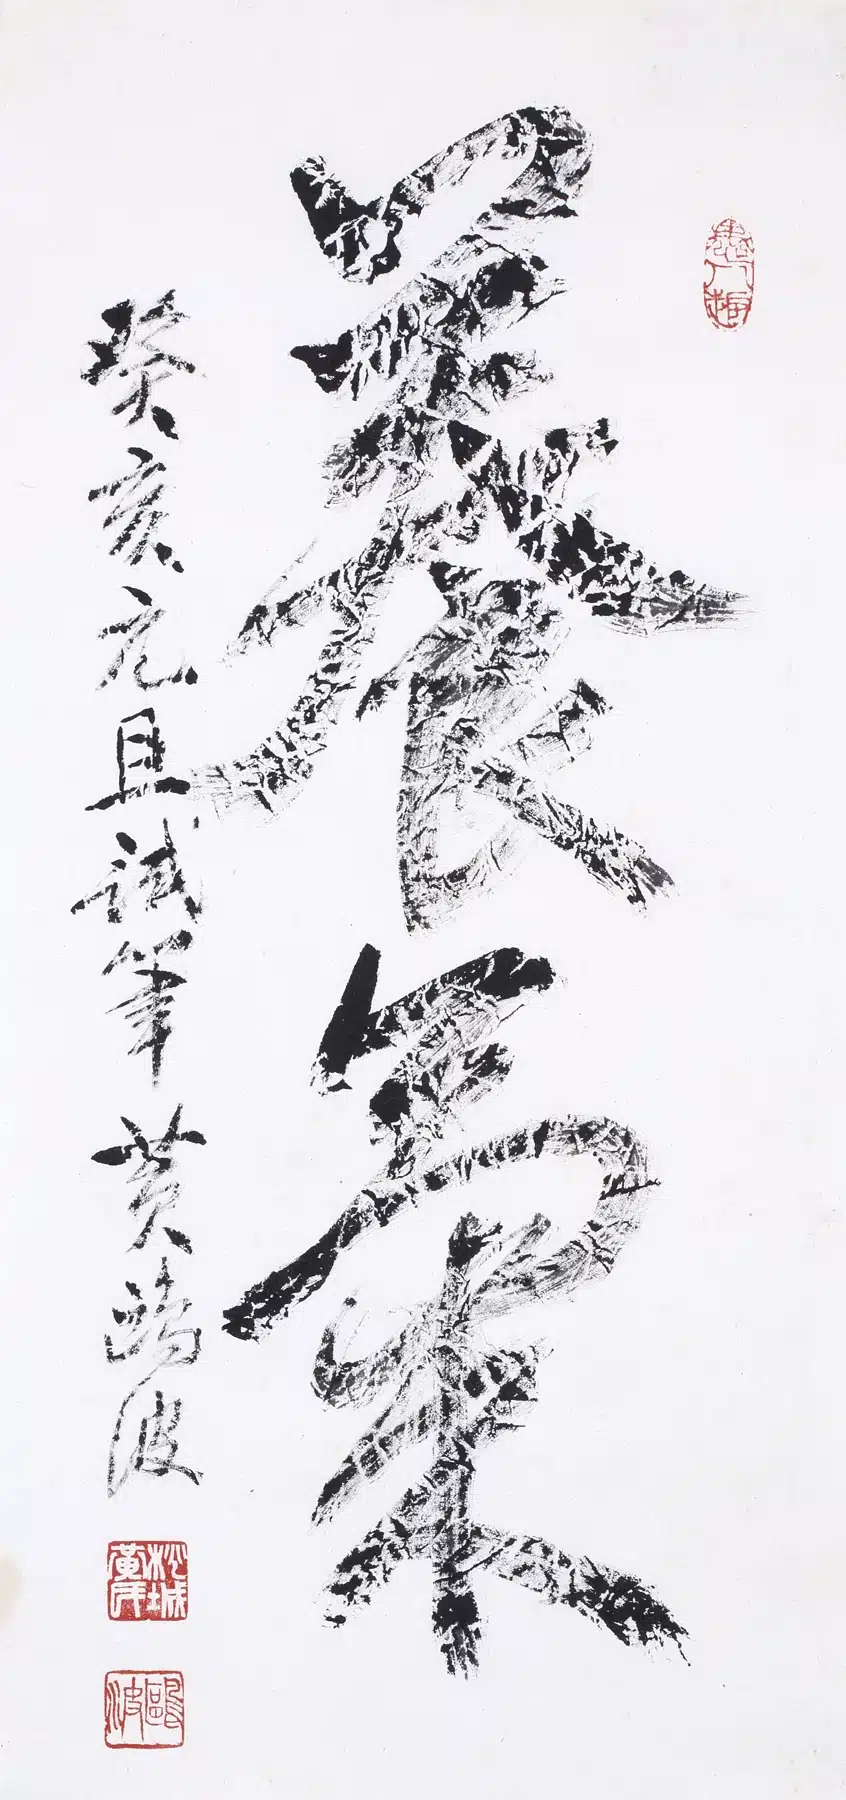 養氣
癸亥元旦試筆 黃鷗波
松城黃氏
鷗波